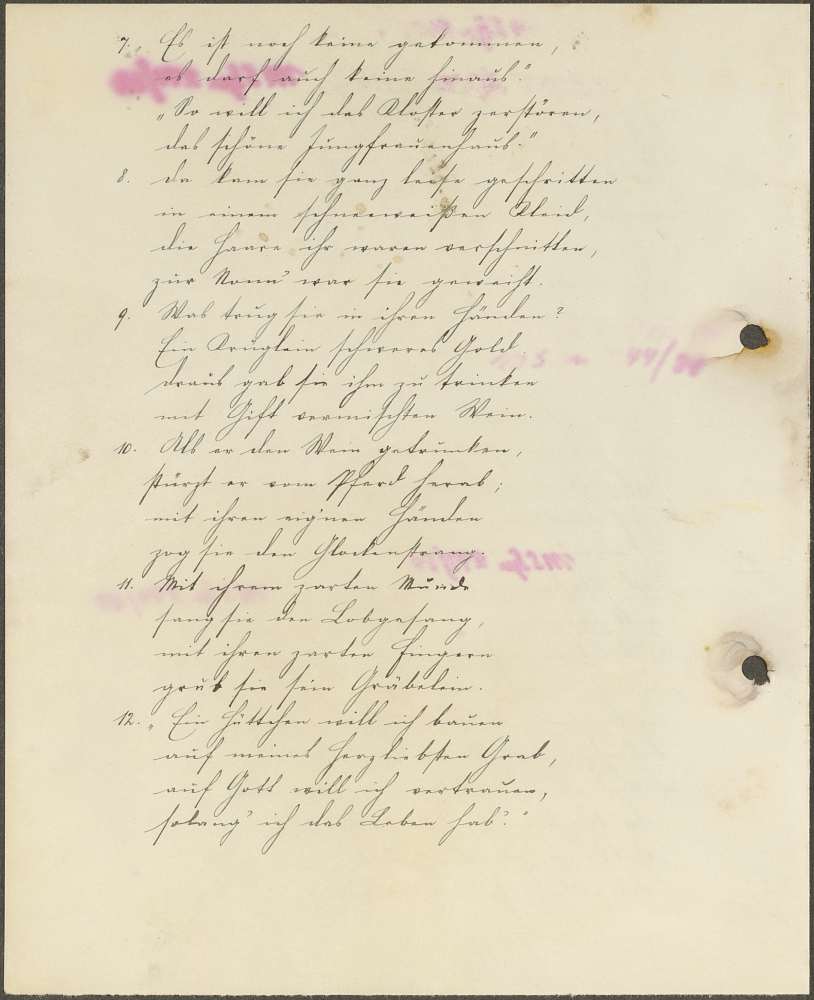 7. „Es ist noch keine gekommen,
es darf auch keine hinaus."
„So will ich das Kloster zerstören,
das schöne Jungfrauenhaus."
8. Da kam sie ganz leise geschritten
in einem schneeweißen Kleid,
die Haare ihr waren verschnitten,
zur Nonn' war sie geweiht.
9. Was trug sie in ihren Händen?
Ein Krüglein schweres Gold,
draus gab sie ihm zu trinken
mit Gift vermischten Wein.
10. Als er den Wein getrunken,
stürzt er vom Pferd herab;
mit ihren eignen Händen
zog sie den Glockenstrang.
11. Mit ihrem zarten Munde
sang sie den Lobgesang,
mit ihren zarten Fingern
grub sie sein Gräbelein.
12. „Ein Hüttchen will ich bauen
auf meines Herzliebsten Grab,
auf Gott will ich vertrauen,
solang' ich das Leben hab'."